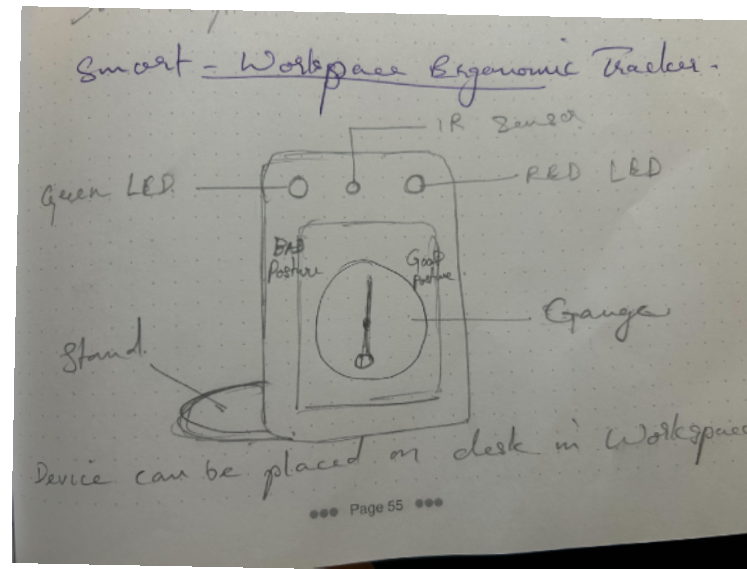 Smart - Workspace Ergonomic Tracker.
IR Sensor
Green LED
RED LED
BAD
Posture
Good
Posture
Gauge
Stand.
Device can be placed on desk in Workspace
Page 55